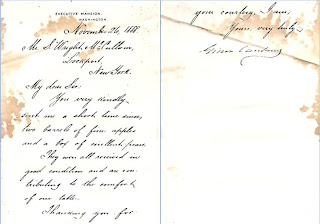 EXECUTIVE MANSION,
WASHINGTON.
November 26, 1888.
Mr. S. Wright McCollum,
Lockport,
New York.
My dear Sir:
You very kindly
sent me a short time since,
two barrels of fine apples
and a box of excellent pears.
They were all received in
good condition and are con-
tributing to the comfort
of our table.
Thanking you for
your courtesy, I am,
Yours, very truly,
Grover Cleveland